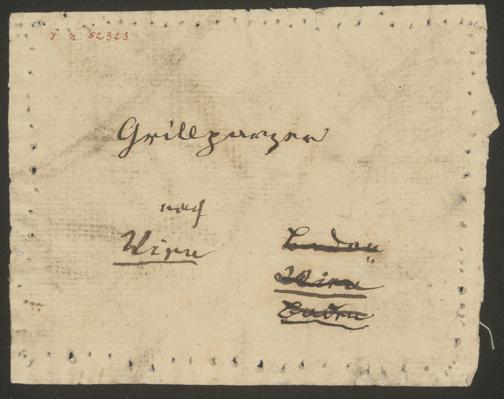 V. N. 82323
Grillparzer
nach
Wien
Baden
Wien
Baden